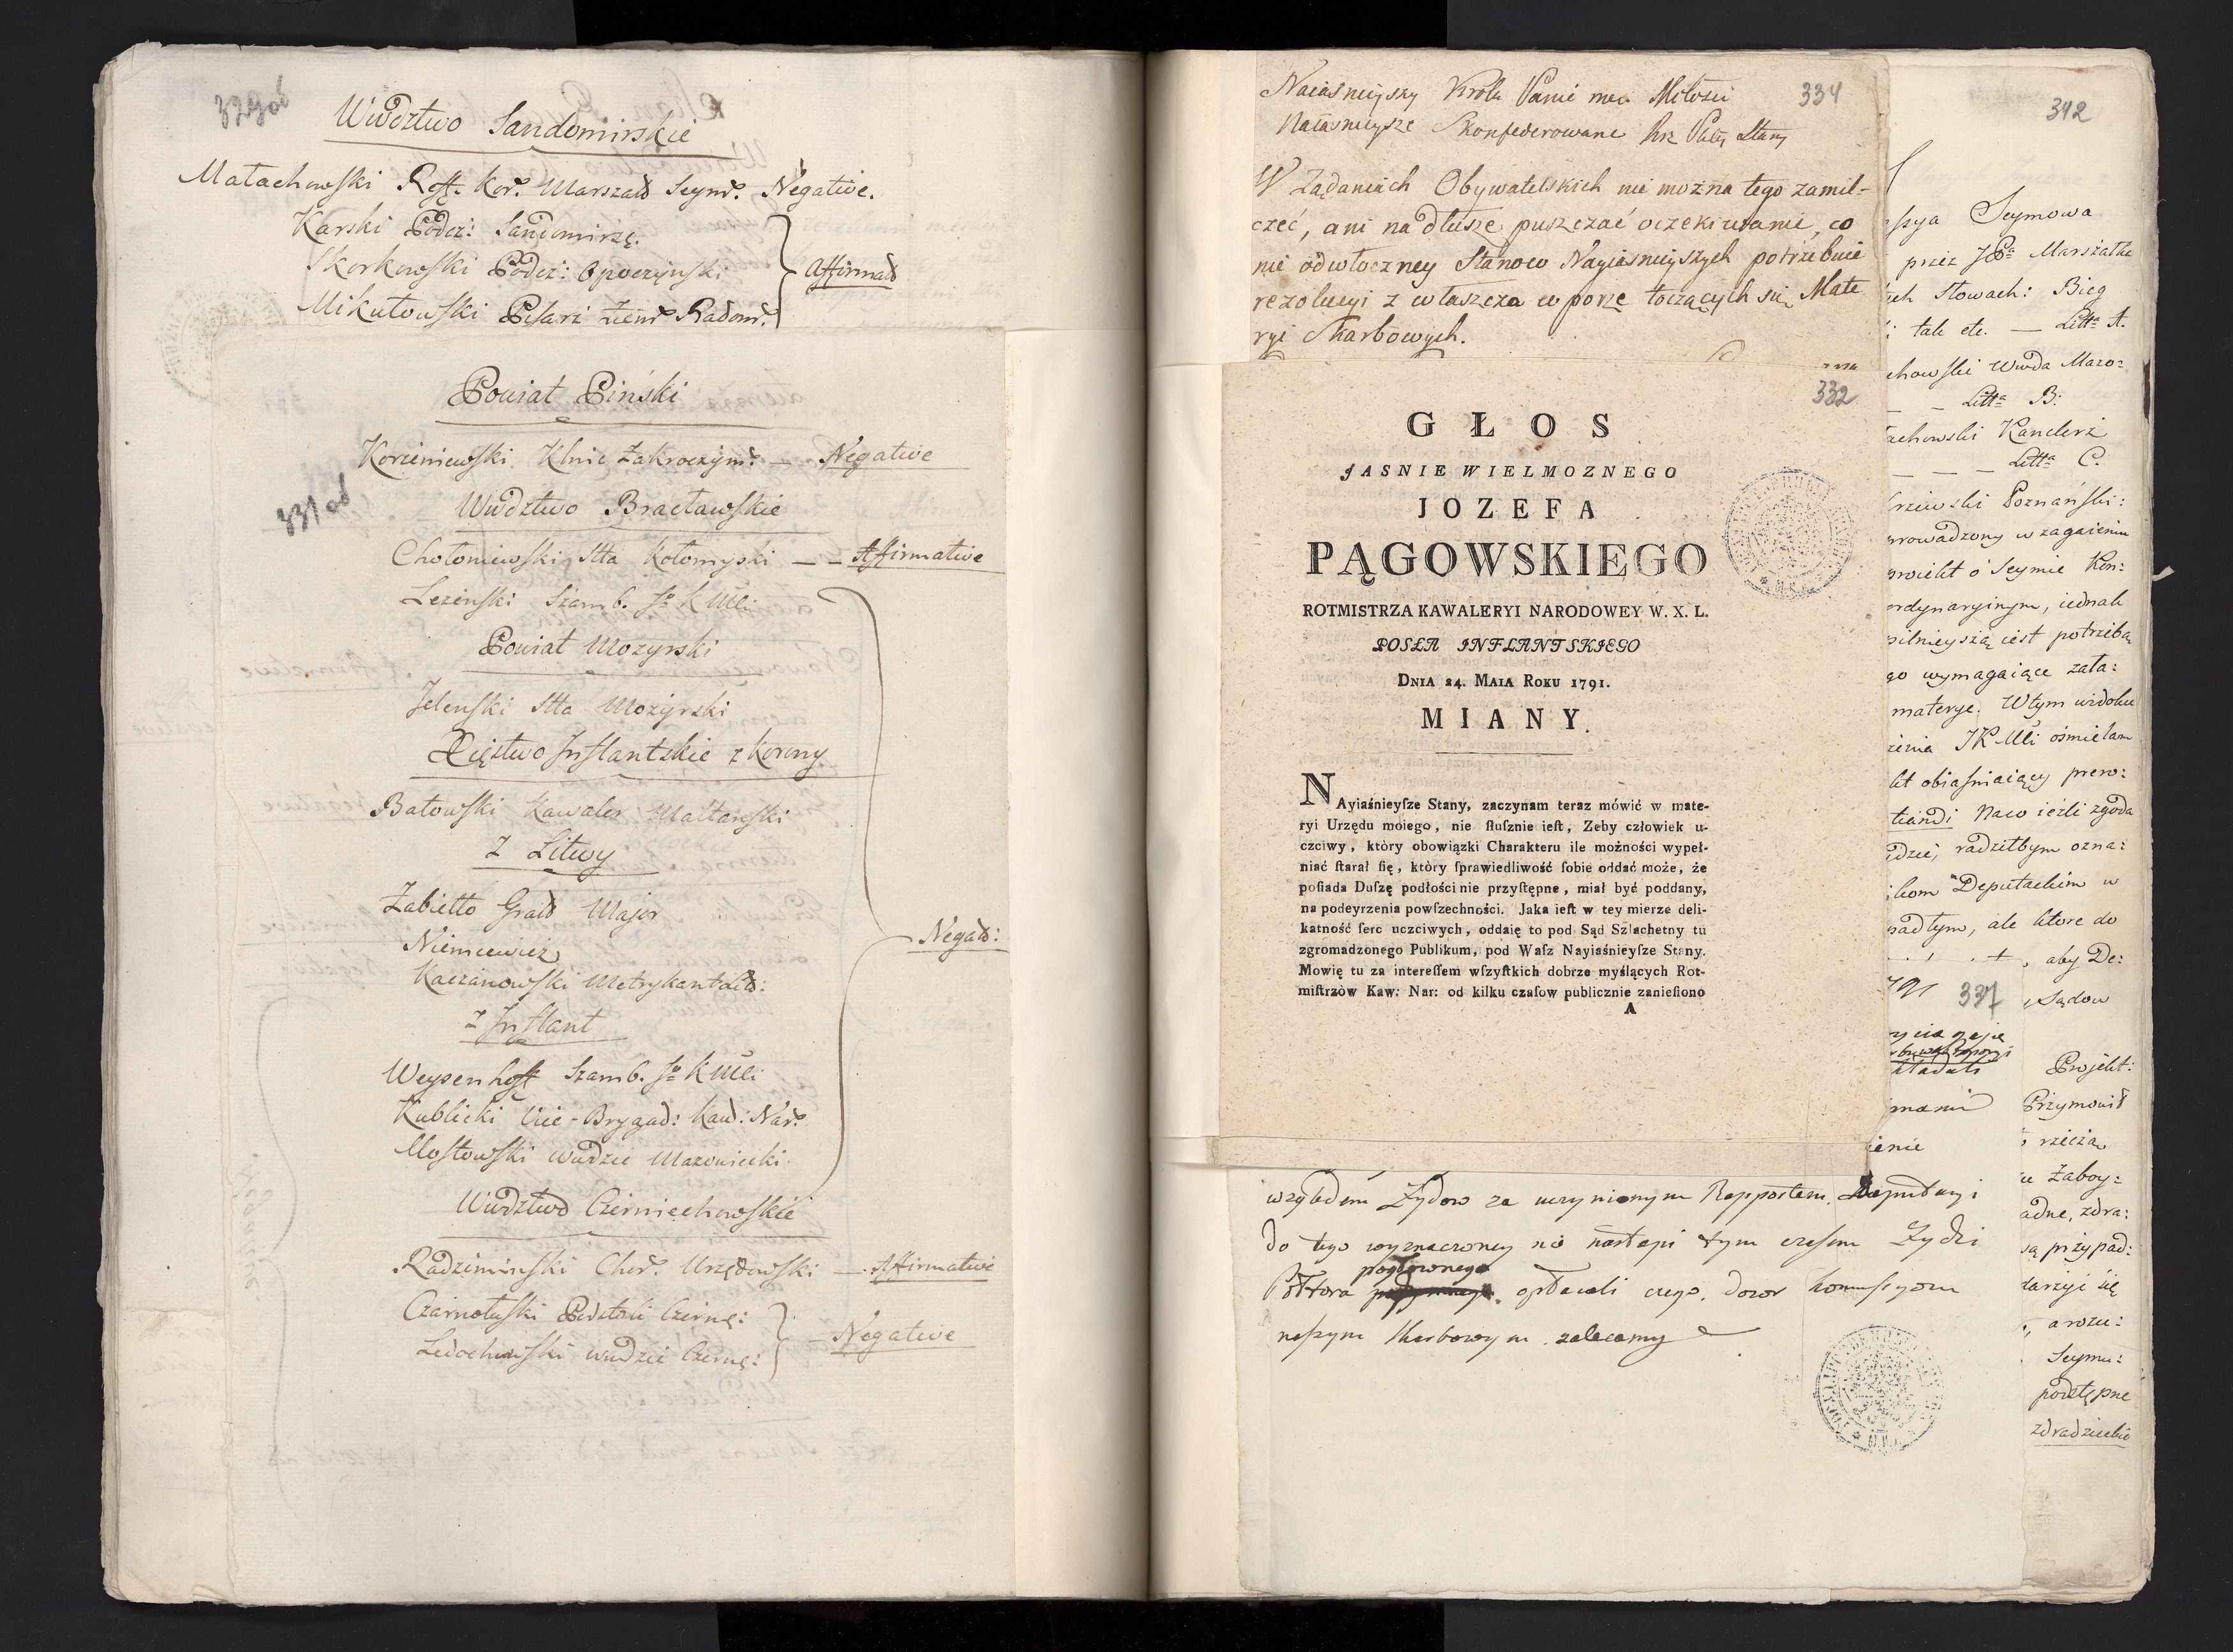 Wwdztwo Sandomirskie
Małachowſki Reff. Kor. Marszał Seym. Negative.
Karski Podcz: Sandomirz.
Skorkowſki Podcz: Opoczynſki
Mikułowſki Pisarz Ziem Radom.
Affirmat
Powiat Pinski
Korzeniewſki, Klnic Zakroczym. — Negative
331 od
Wwdztwo Bracławſkie
Chołoniewſki Stta Kołomyſki — – Affirmative
Lezenſki Szamb. J. K Mći
Powiat Mozyrski
Jelenſki Stta Mozyrski
Xięztwo Inflantskie z Korony
Batowſki Kawaler Maltanſki
Z Litwy
Zabiełło Grał Major
Niemcewicz
Kaczanowſki Metrykant Lit:
Negat:
Z Inflant
Weysenhoff Szamb. J. K Mći
Kublicki Vice-Brygad: Kaw: Nar.
Mostowſki wwdzic Mazowiecki.
Wwdztwo Czerniechowſkie
Radziminſki Chor. Urzędowſki — Affirmative
Czarnoluſki Podstoli Czernię:
Ledochowſki wwdzic Czernię:
Negative
Naiasnieyszy Krolu Panie moy Miłosci
334
Naiasnieysze Skonfederowane Rze Stany
W Ządaniach Obywatelskich nie można tego zamil-
czeć, ani na dłusze puszczać oczekiwanie, co
nie odwłoczney Stanow Nayiasnieyszych potrzebuie
rezolucyi z właszcza w porze toczących się Mate
ryi Skarbowych.
332
GŁOS
JASNIE WIELMOZNEGO
JOZEFA
PĄGOWSKIEGO
ROTMISTRZA KAWALERYI NARODOWEY W. X. L.
POSŁA INFLANTSKIEGO
DNIA 24. MAIA ROKU 1791.
MIANY.
NAyiaśnieyſze Stany, zaczynam teraz mówić w mate-
ryi Urzędu moiego, nie ſluſznie ieſt, Zeby człowiek u-
czciwy, który obowiązki Charakteru ile możności wypeł-
niać ſtarał ſię, który ſprawiedliwość ſobie oddać może, że
poſiada Duſzę podłości nie przyſtępne, miał być poddany,
na podeyrzenia powſzechności. Jaka ieſt w tey mierze deli-
katność ſerc uczciwych, oddaię to pod Sąd Szlachetny tu
zgromadzonego Publikum, pod Waſz Nayiaśnieyſze Stany.
Mowię tu za intereſſem wſzyſtkich dobrze myślących Rot-
miſtrzòw Kaw: Nar: od kilku czaſow publicznie zanieſiono
A
względem Zydow za uczynionym Rapportem Deputacyi
do tego wyznaczoney nie nastąpi tym czasem Zydzi
pogłownego
Połtora opłacali czego. dozor Kommissyom
naszym Skarbowym zalecamy
342
Seymowa
przez JPa Marszałka
Słowach: Bieg
tak etc. — Litt: A.
Wwda Mazo:
– – Litta B:
Kanclerz
— — – Litta C.
Poznanſki:
w zagaieniu
o Seymie Kon:
iednak
iest potrzeba
wymagaiące zała:
materye. W tym widoku
JK Mći ośmielam
obiaśniaiący prero:
Naco ieżli zgoda
radziłbym ozna:
Deputackim w
ale ktore do
, aby De:
337
Sądow
Projekt:
Przymowił
rzeczą
Zaboy:
zdra:
przypad:
się
a rozu:
Seymu:
podstępne
zdradzieckie